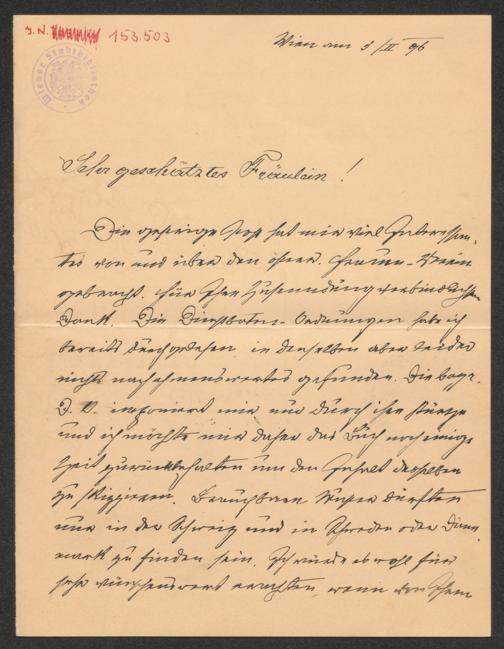 J. N. 153.503
Wiener Stadtbibliothek
Wien am 3/II 96
Sehr geschätztes Fräulein!
Die gestrige Post hat mir viel Interessan-
tes von und über den österr. Frauen-Verein
gebracht. Für Ihre Zusendung verbindlichsten
Dank. Die Dienstboten-Ordnungen habe ich
bereits durchgesehen, in denselben aber leider
nichts nachahmenswertes gefunden. Die
D. O. imponiert mir nur durch ihre Kürze
und ich möchte mir daher das Buch noch einige
Zeit zurückbehalten um den Inhalt derselben
zu skizzieren. Brauchbare dürften
nur in der Schweiz und in Schweden oder Däne-
mark zu finden sein. Ich würde es wohl für
sehr wünschenswert erachten, wenn von Ihrem